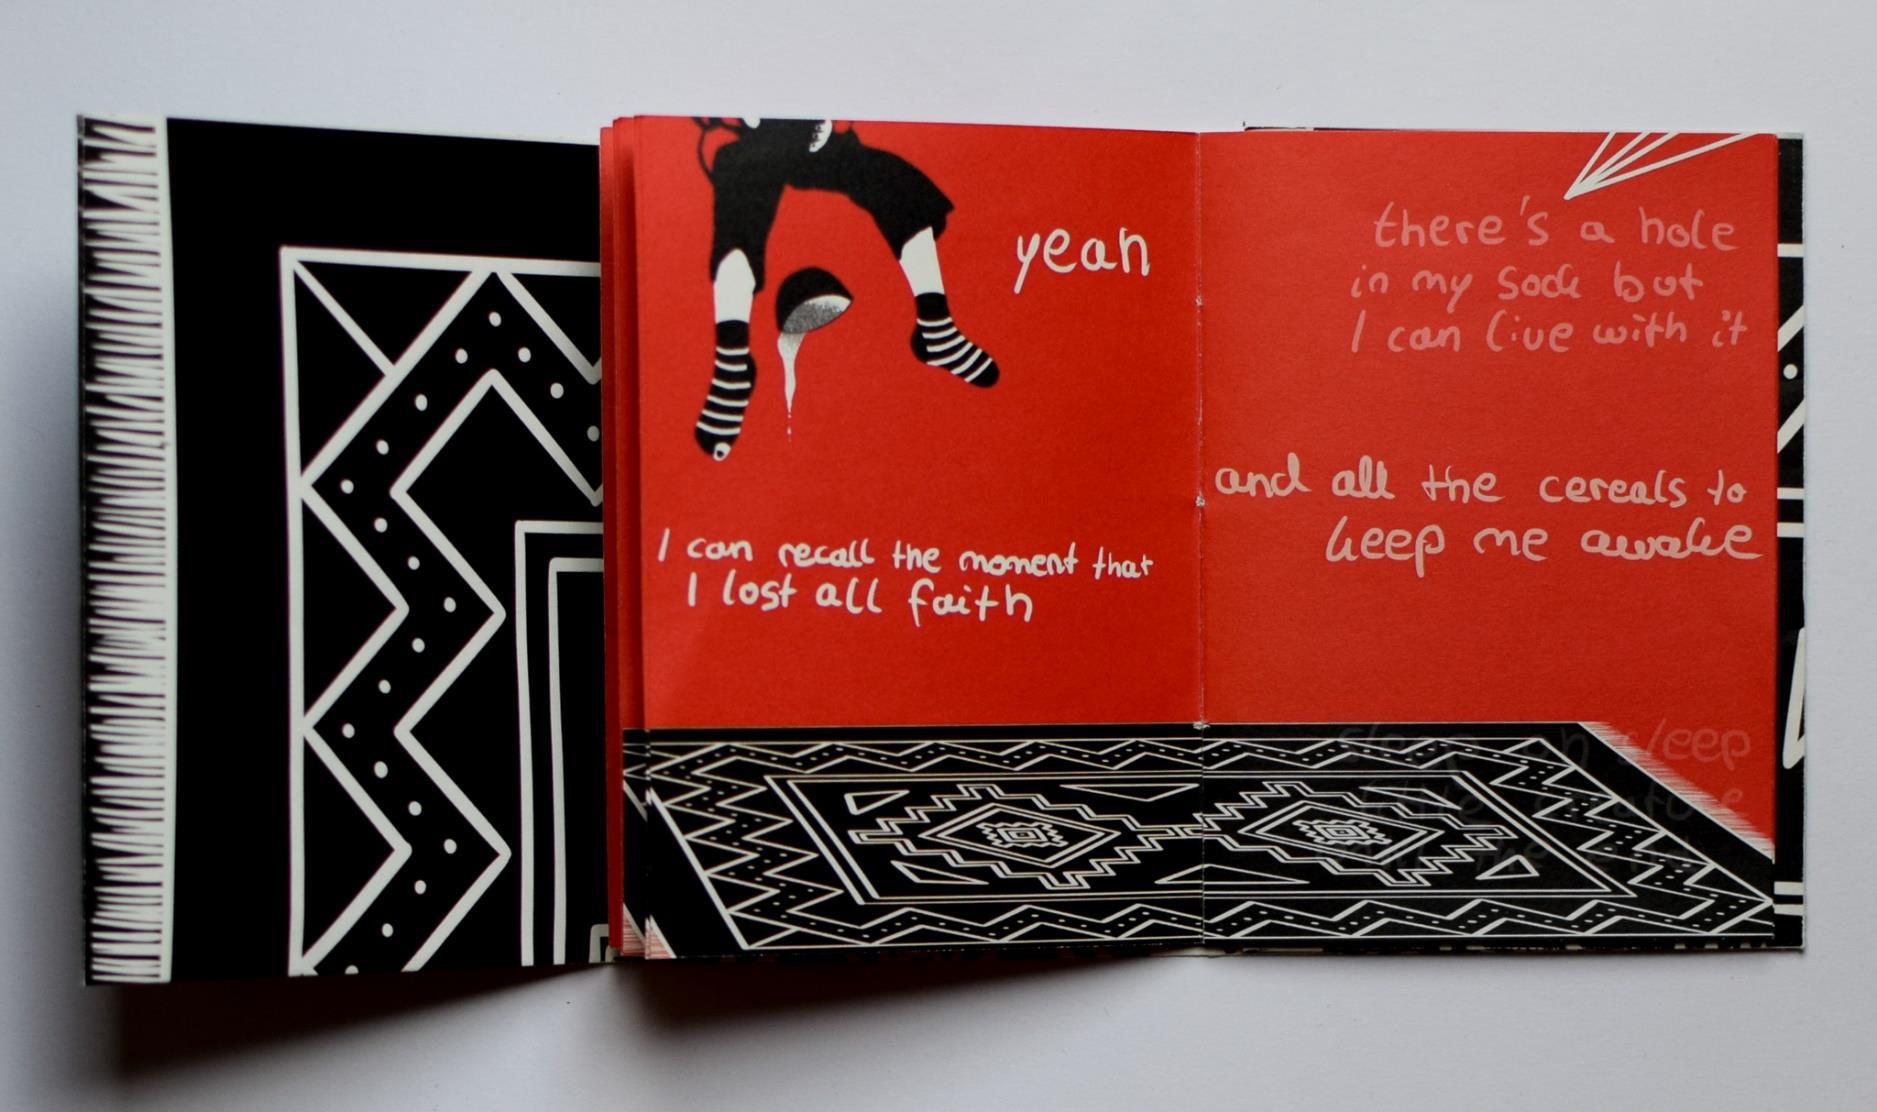 yeah
I can recall the moment that
I lost all faith
there's a hole
in my sock but
I can live with it
and all the cereals to
keep me awake
sleep oh sleep